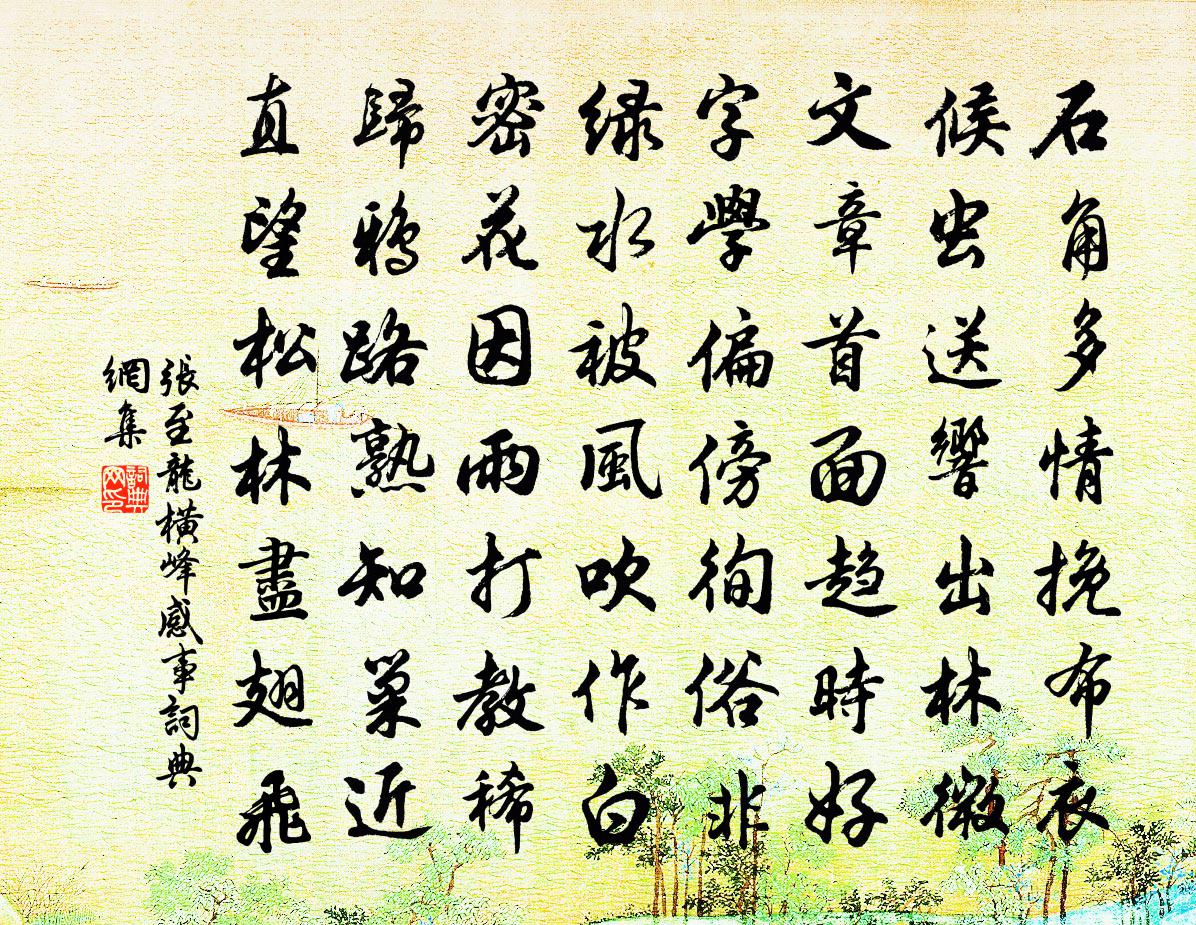 石角多情挽布衣
候虫送響出林微
文章首面趋時好
字學偏傍徇俗非
绿水被風吹作白
密花因雨打教稀
歸鴉路熟知巢近
直望松林盡翅飛
張至龍橫峰感事詞典
網集
詞典网印